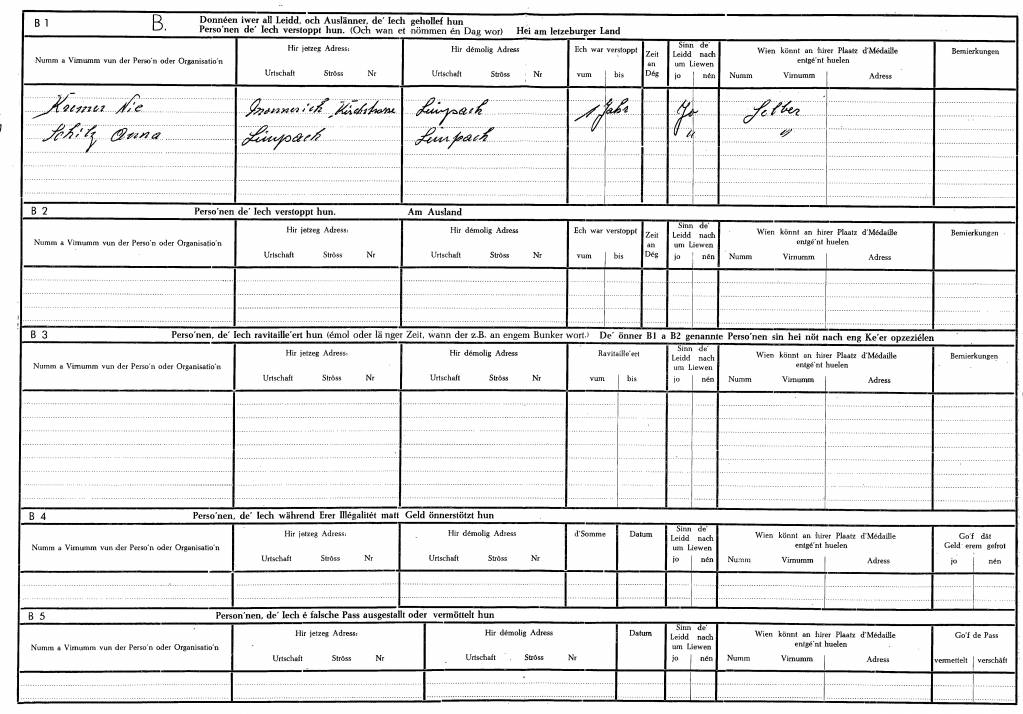 B 1 B. Donnéen iwer all Leidd, och Auslänner, de' Iech gehollef hun
Perso'nen de' Iech verstoppt hun. (Och wan et nömmen én Dag wor) Hei am letzeburger Land
Numm a Virnumm vun der Perso'n oder Organisatio'n
Hir jetzeg Adress:
Urtschaft Ströss Nr
Hir démolig Adress
Urtschaft Ströss Nr
Ech war verstoppt
vum bis
Zeit an Dég
Sinn de' Leidd nach um Liewen
jo nén
Wien könnt an hirer Plaatz d'Médaille entgé'nt huelen
Numm Virnumm Adress
Bemierkungen
Kremer Nic Monnerich, Kirchstrasse Limpach 1 Jahr Jo Selber
Schilz Anna Limpach Limpach " "
B 2 Perso'nen de' Iech verstoppt hun. Am Ausland
Numm a Virnumm vun der Perso'n oder Organisatio'n
Hir jetzeg Adress:
Urtschaft Ströss Nr
Hir démolig Adress
Urtschaft Ströss Nr
Ech war verstoppt
vum bis
Zeit an Dég
Sinn de' Leidd nach um Liewen
jo nén
Wien könnt an hirer Plaatz d'Médaille entgé'nt huelen
Numm Virnumm Adress
Bemierkungen
B 3 Perso'nen, de' Iech ravitaille'ert hun (émol oder länger Zeit, wann der z.B. an engem Bunker wort.) De' önner B1 a B2 genannte Perso'nen sin hei nöt nach eng Ke'er opzeziélen
Numm a Virnumm vun der Perso'n oder Organisatio'n
Hir jetzeg Adress:
Urtschaft Ströss Nr
Hir démolig Adress
Urtschaft Ströss Nr
Ravitaille'ert
vum bis
Sinn de' Leidd nach um Liewen
jo nén
Wien könnt an hirer Plaatz d'Médaille entgé'nt huelen
Numm Virnumm Adress
Bemierkungen
B 4 Perso'nen, de' Iech während Erer Illégalitét matt Geld önnerstötzt hun
Numm a Virnumm vun der Perso'n oder Organisatio'n
Hir jetzeg Adress:
Urtschaft Ströss Nr
Hir démolig Adress
Urtschaft Ströss Nr
d'Somme
Datum
Sinn de' Leidd nach um Liewen
jo nén
Wien könnt an hirer Plaatz d'Médaille entgé'nt huelen
Numm Virnumm Adress
Go'f dät Geld erem gefrot
jo nén
B 5 Person'nen, de' Iech é falsche Pass ausgestallt oder vermöttelt hun
Numm a Virnumm vun der Perso'n oder Organisatio'n
Hir jetzeg Adress:
Urtschaft Ströss Nr
Hir démolig Adress
Urtschaft Ströss Nr
Datum
Sinn de' Leidd nach um Liewen
jo nén
Wien könnt an hirer Plaatz d'Médaille entgé'nt huelen
Numm Virnumm Adress
Go'f de Pass
vermettelt verschäft